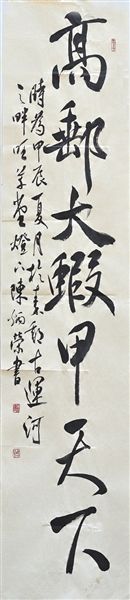 高郵大蝦甲天下
時為甲辰夏月於秦郵古運河
之畔百草堂燈下陳炳榮書